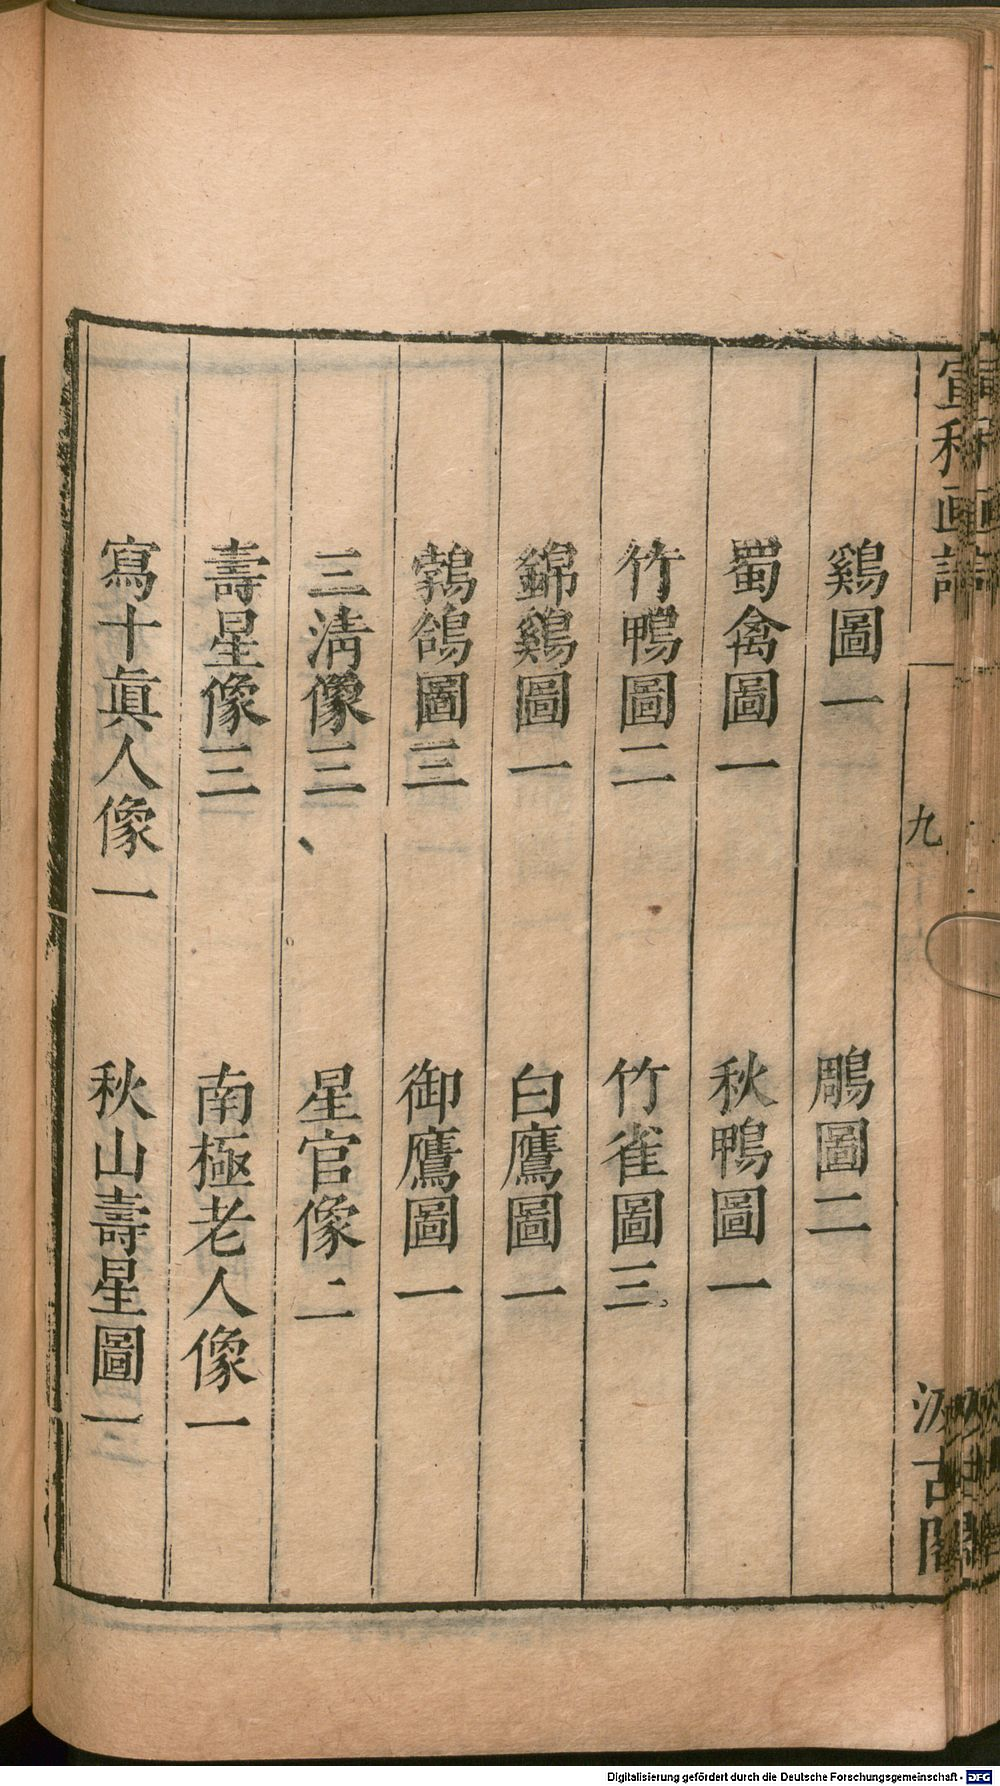 宣和画譜
九
汲古閣
鷄圖一 鵰圖二
蜀禽圖一 秋鴨圖一
竹鴨圖二 竹雀圖三
錦鷄圖一 白鷹圖一
鵓鴿圖三 御鷹圖一
三淸像三 星官像二
壽星像三 南極老人像一
寫十眞人像一 秋山壽星圖一
Digitalisierung gefördert durch die Deutsche Forschungsgemeinschaft - DFG